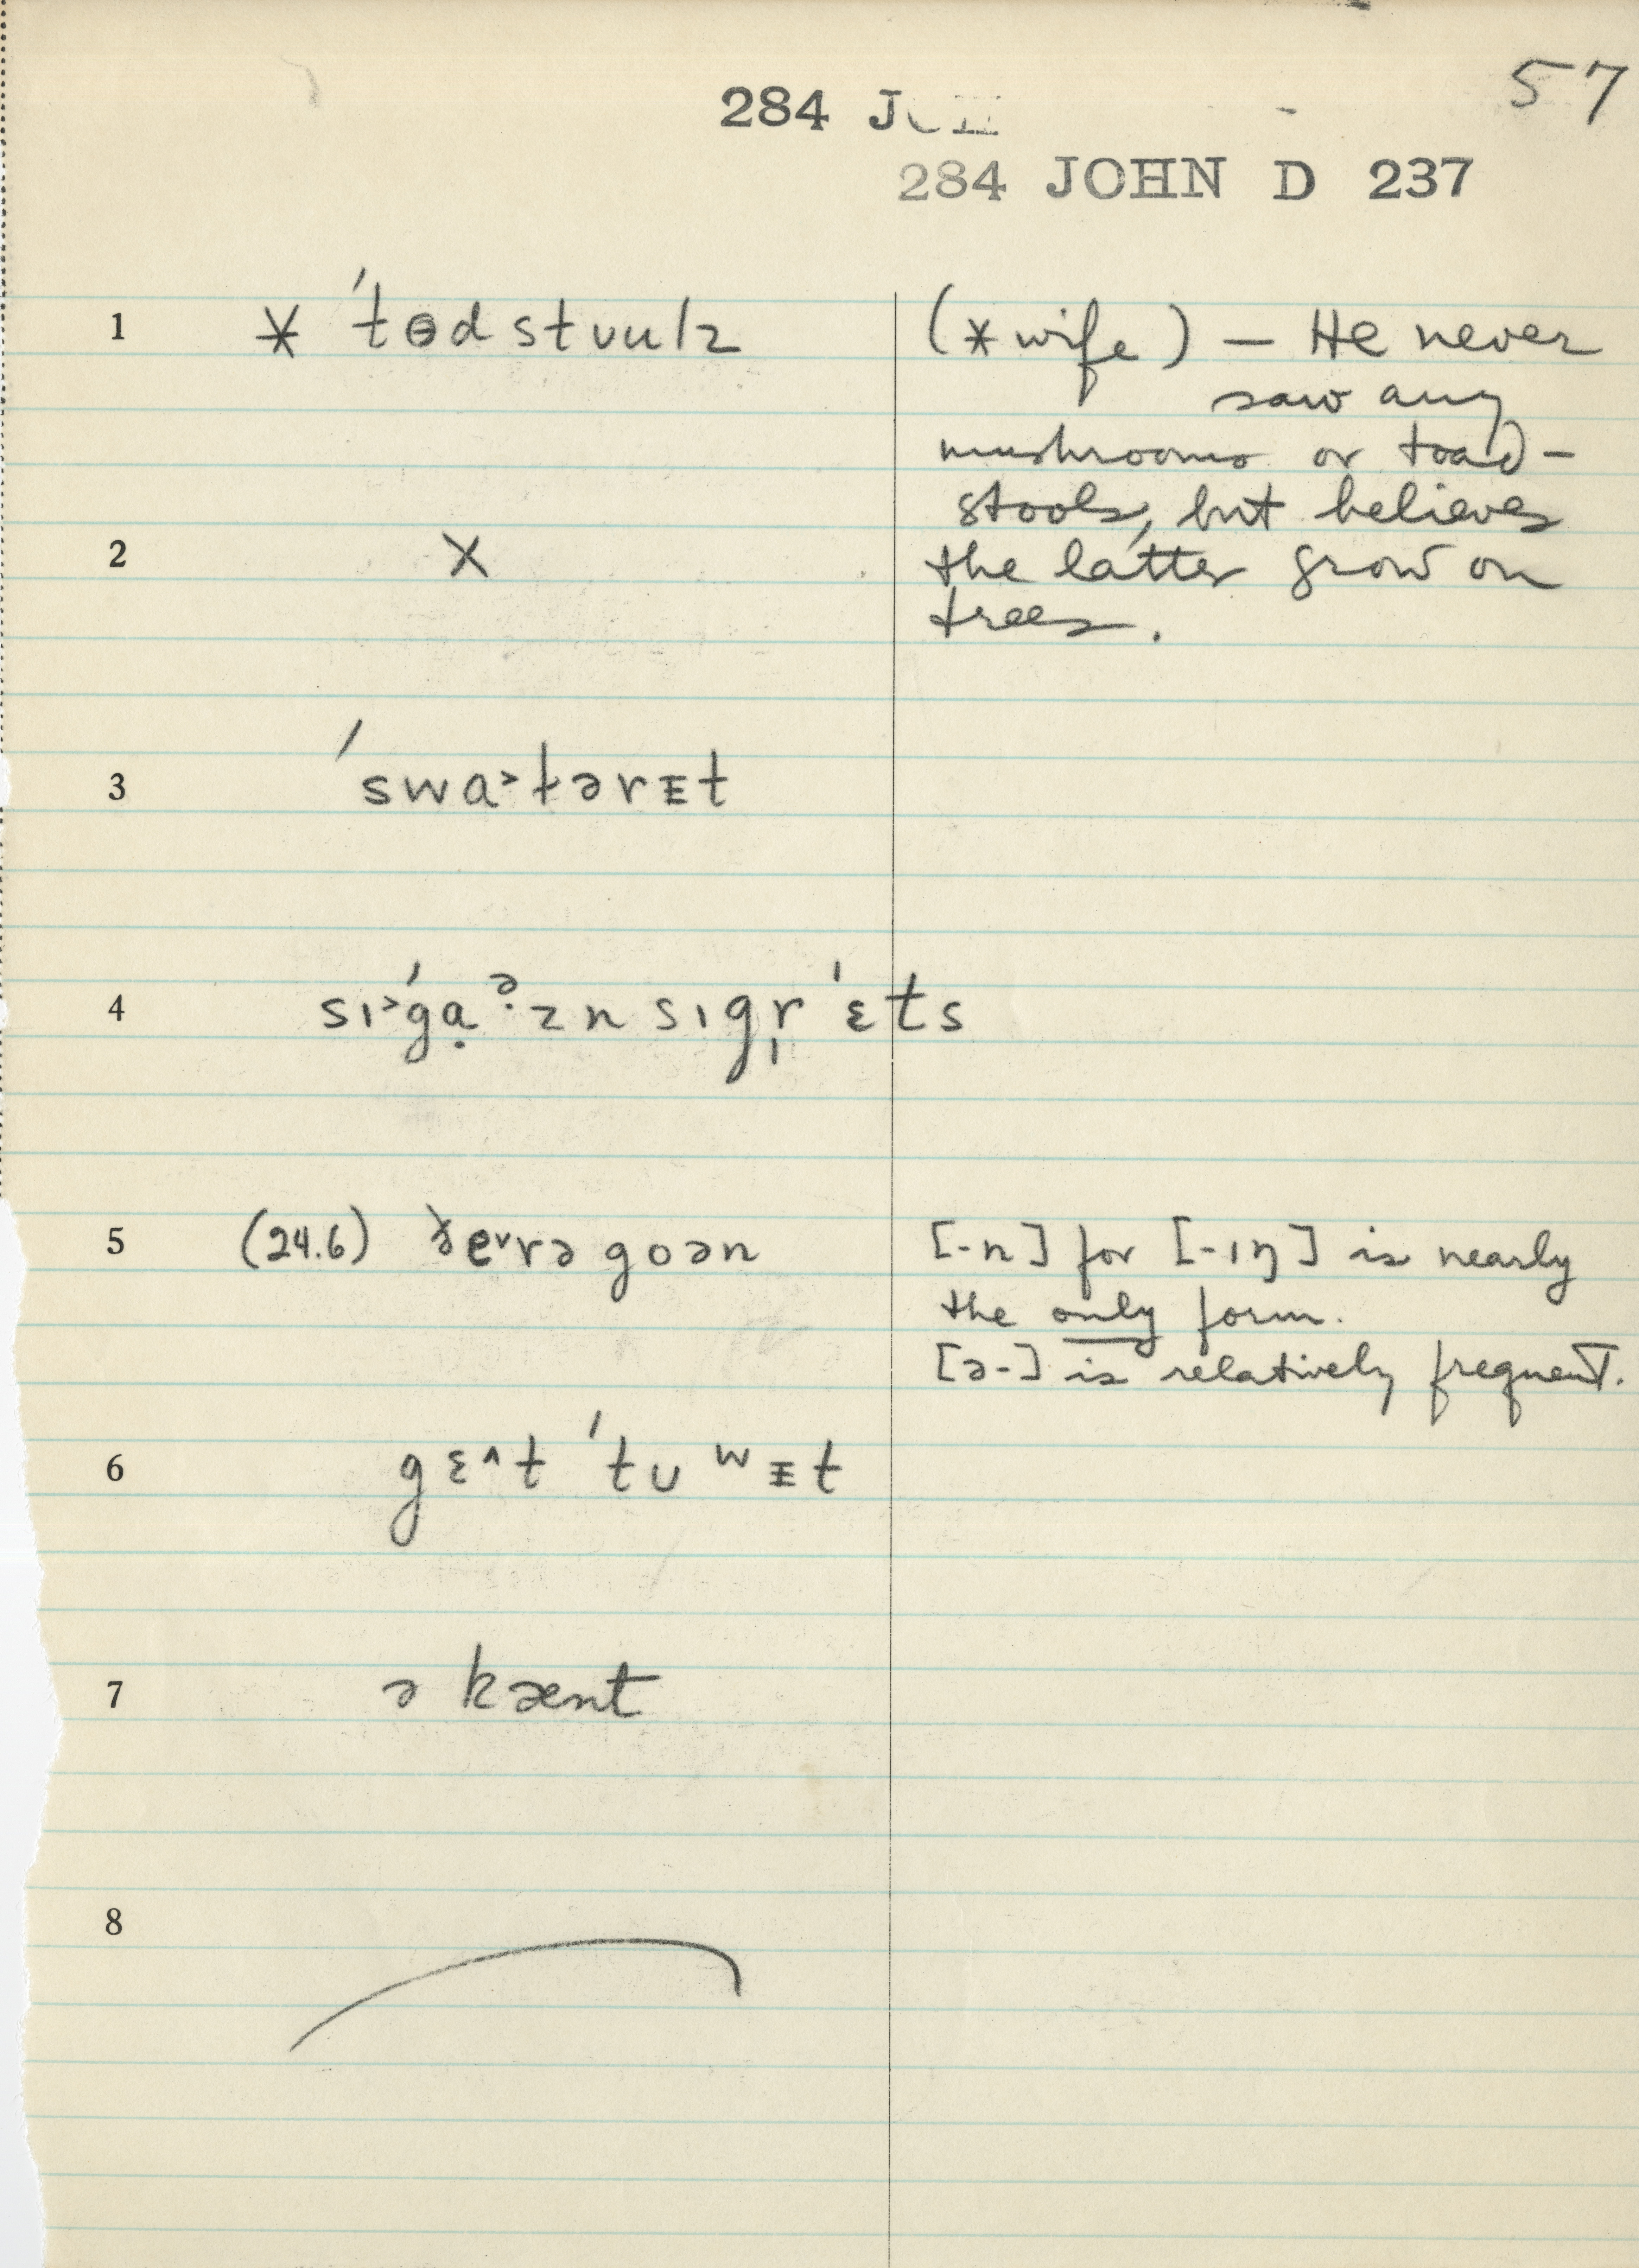 57
284 J
284 JOHN D 237
1 * ˈtɵdstuulz (*wife) — He never
saw any
mushrooms or toad-
stools, but believes
2 X the latter grow on
trees.
3 ˈswa˃tərᵻt
4 sɪ˃ˈga̤ᵊ·zn sɪgr̩ˈɛts
5 (24.6) ðe˅rə goən [-n] for [-ɪŋ] is nearly
the only form.
[ə-] is relatively frequent.
6 gɛ˄t ˈtu ʷᵻt
7 ə kænt
8